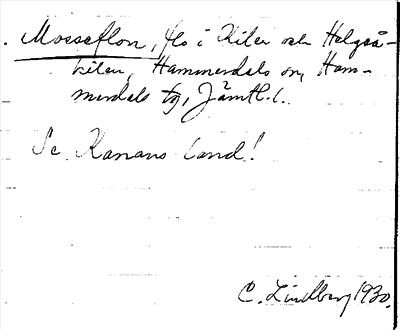 Mosseflon, flo i Kilen och Helgså-
kilen, Hammerdals sn, Ham-
merdals tg, Jämtl. l.
Se Kanans land!
C. Lindberg 1930.